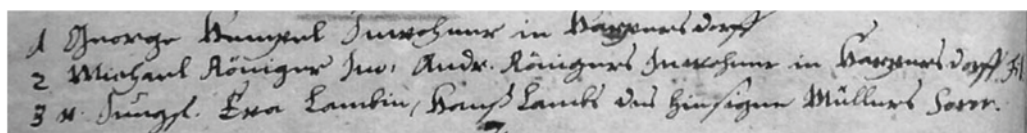 1 George Hempel Inwohner in Harpersdorff
2 Michael Röniger Jun: Andr. Rönigers Inwohner in Harpersdorff
3 u. Jungf. Eva Lambin, Hanß Lambs des hiesigen Müllers